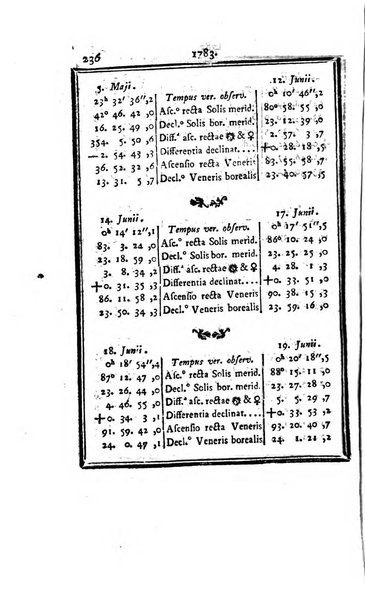 236 1783.
5. Maji. 12. Junii.
23h 32' 36",2 Tempus ver. observ. 0h 10' 46",2
42° 46. 42 ,0 Asc.° recta Solis merid. 80° 58. 55 ,0
16. 25. 49 ,0 Decl.° Solis bor. merid. 23. 12. 39 ,0
354. 5. 50 ,6 Diff.ª asc. rectae ☉ & ♀ 2. 57. 3 ,2
— 2. 54. 43 ,3 Differentia declinat.... +0. 28. 18 ,5
36. 52. 32 ,6 Ascensio recta Veneris 83. 55. 58 ,2
13. 31. 5 ,7 Decl.° Veneris borealis 23. 40. 57 ,5
14. Junii. 17. Junii.
0h 14' 12",1 Tempus ver. observ. 0h 17' 51",5
83. 3. 24 ,0 Asc.° recta Solis merid. 86° 10. 24 ,0
23. 18. 59 ,0 Decl.° Solis bor. merid. 23. 25. 25 ,0
3. 8. 34 ,2 Diff.ª asc. rectae ☉ & ♀ 4. 28. 1 ,3
+0. 31. 35 ,3 Differentia declinat.... +0. 33. 51 ,0
86. 11. 58 ,2 Ascensio recta Veneris 90. 38. 15 ,3
23. 50. 34 ,3 Decl.° Veneris borealis 23. 59. 16 ,0
18. Junii. 19. Junii.
0h 18' 54",4 Tempus ver. observ. 0h 20' 18",5
87° 12. 47 ,0 Asc.° recta Solis merid. 88° 15. 11 ,0
23. 26. 44 ,0 Decl.° Solis bor. merid. 23. 27. 38 ,0
4. 46. 55 ,5 Diff.ª asc. rectae ☉ & ♀ 5. 5. 29 ,7
+0. 34. 3 ,1 Differentia declinat.... +0. 33. 43 ,2
91. 59. 42 ,5 Ascensio recta Veneris 93. 20. 40 ,7
24. 0. 47 ,1 Decl.° Veneris borealis 24. 1. 21 ,2